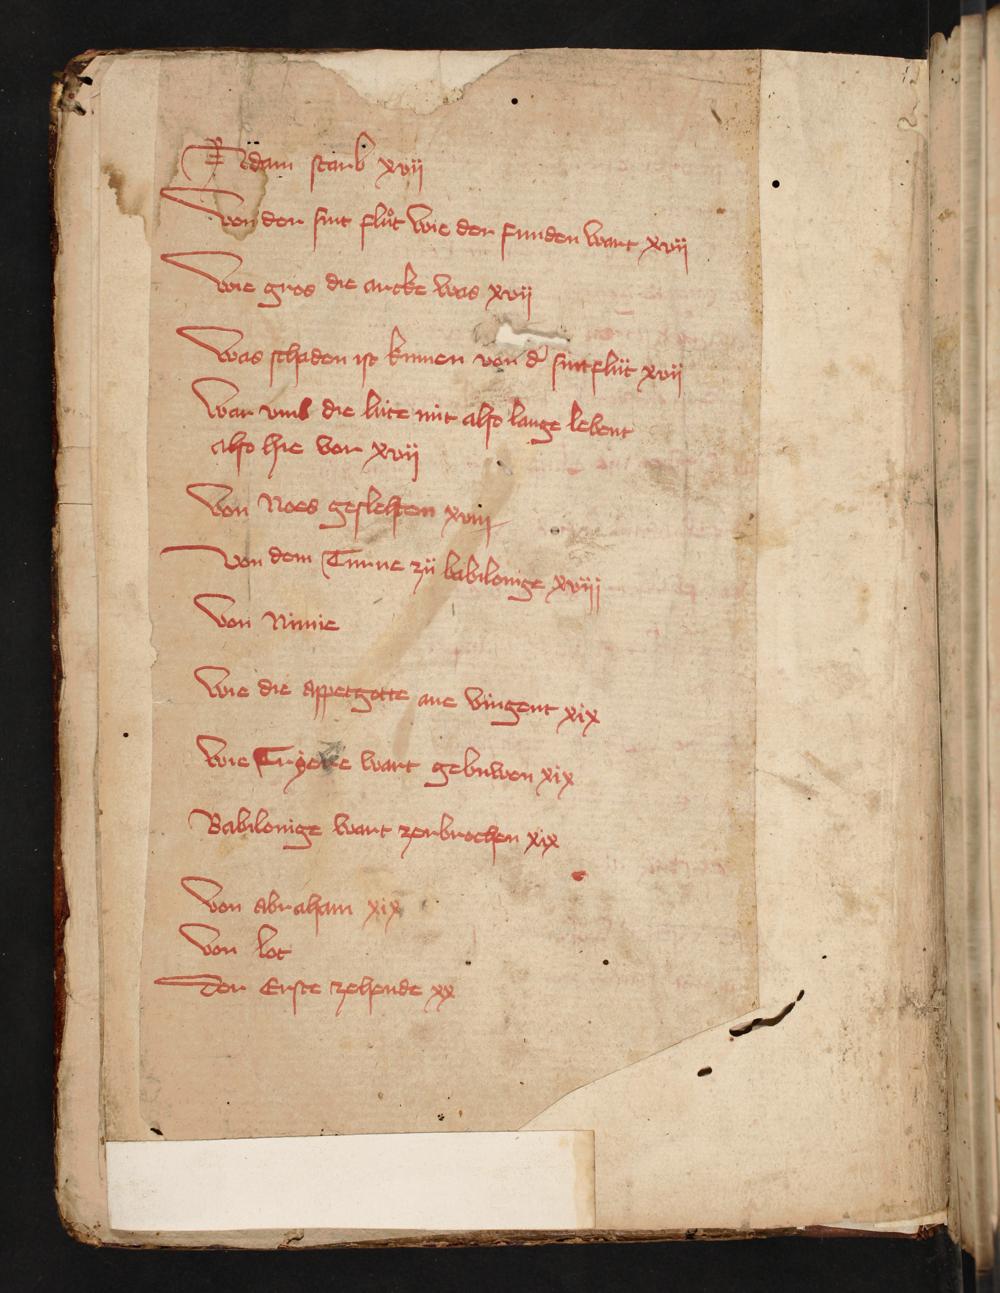 Adam starb xvij
Von der sint fluͦt wie der funden wart xvij
Wie gros die arcke was xvij
Was schaden ist kumen von d' sintfluͤt xvij
War vmb die luͤte nuͤt also lange lebent
also hie vor xvij
Von Noes geslehten xviij
Von dem Turne zuͤ babilonige xviij
Von Ninie
Wie die appetgotte ane vingent xix
Wie Triere wart gebuwen xix
Babilonige wart zerbrochen xix
Von abraham xix
Von lot
Der Erste zehende xx